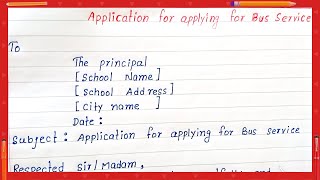 Application for applying for Bus Service
To
The principal
[School Name]
[School Address]
[City name ]
Date :
Subject : Application for applying for Bus service
Respected Sir/Madam,